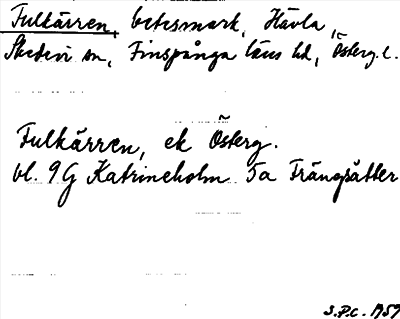 Fulkärren, betesmark, Hävla,
Skedevi sn, Finspånga läns hd, Österg. l.
Fulkärren, ek Österg.
bl. 9G Katrineholm 5a Trängsätter
S.P.C. 1959